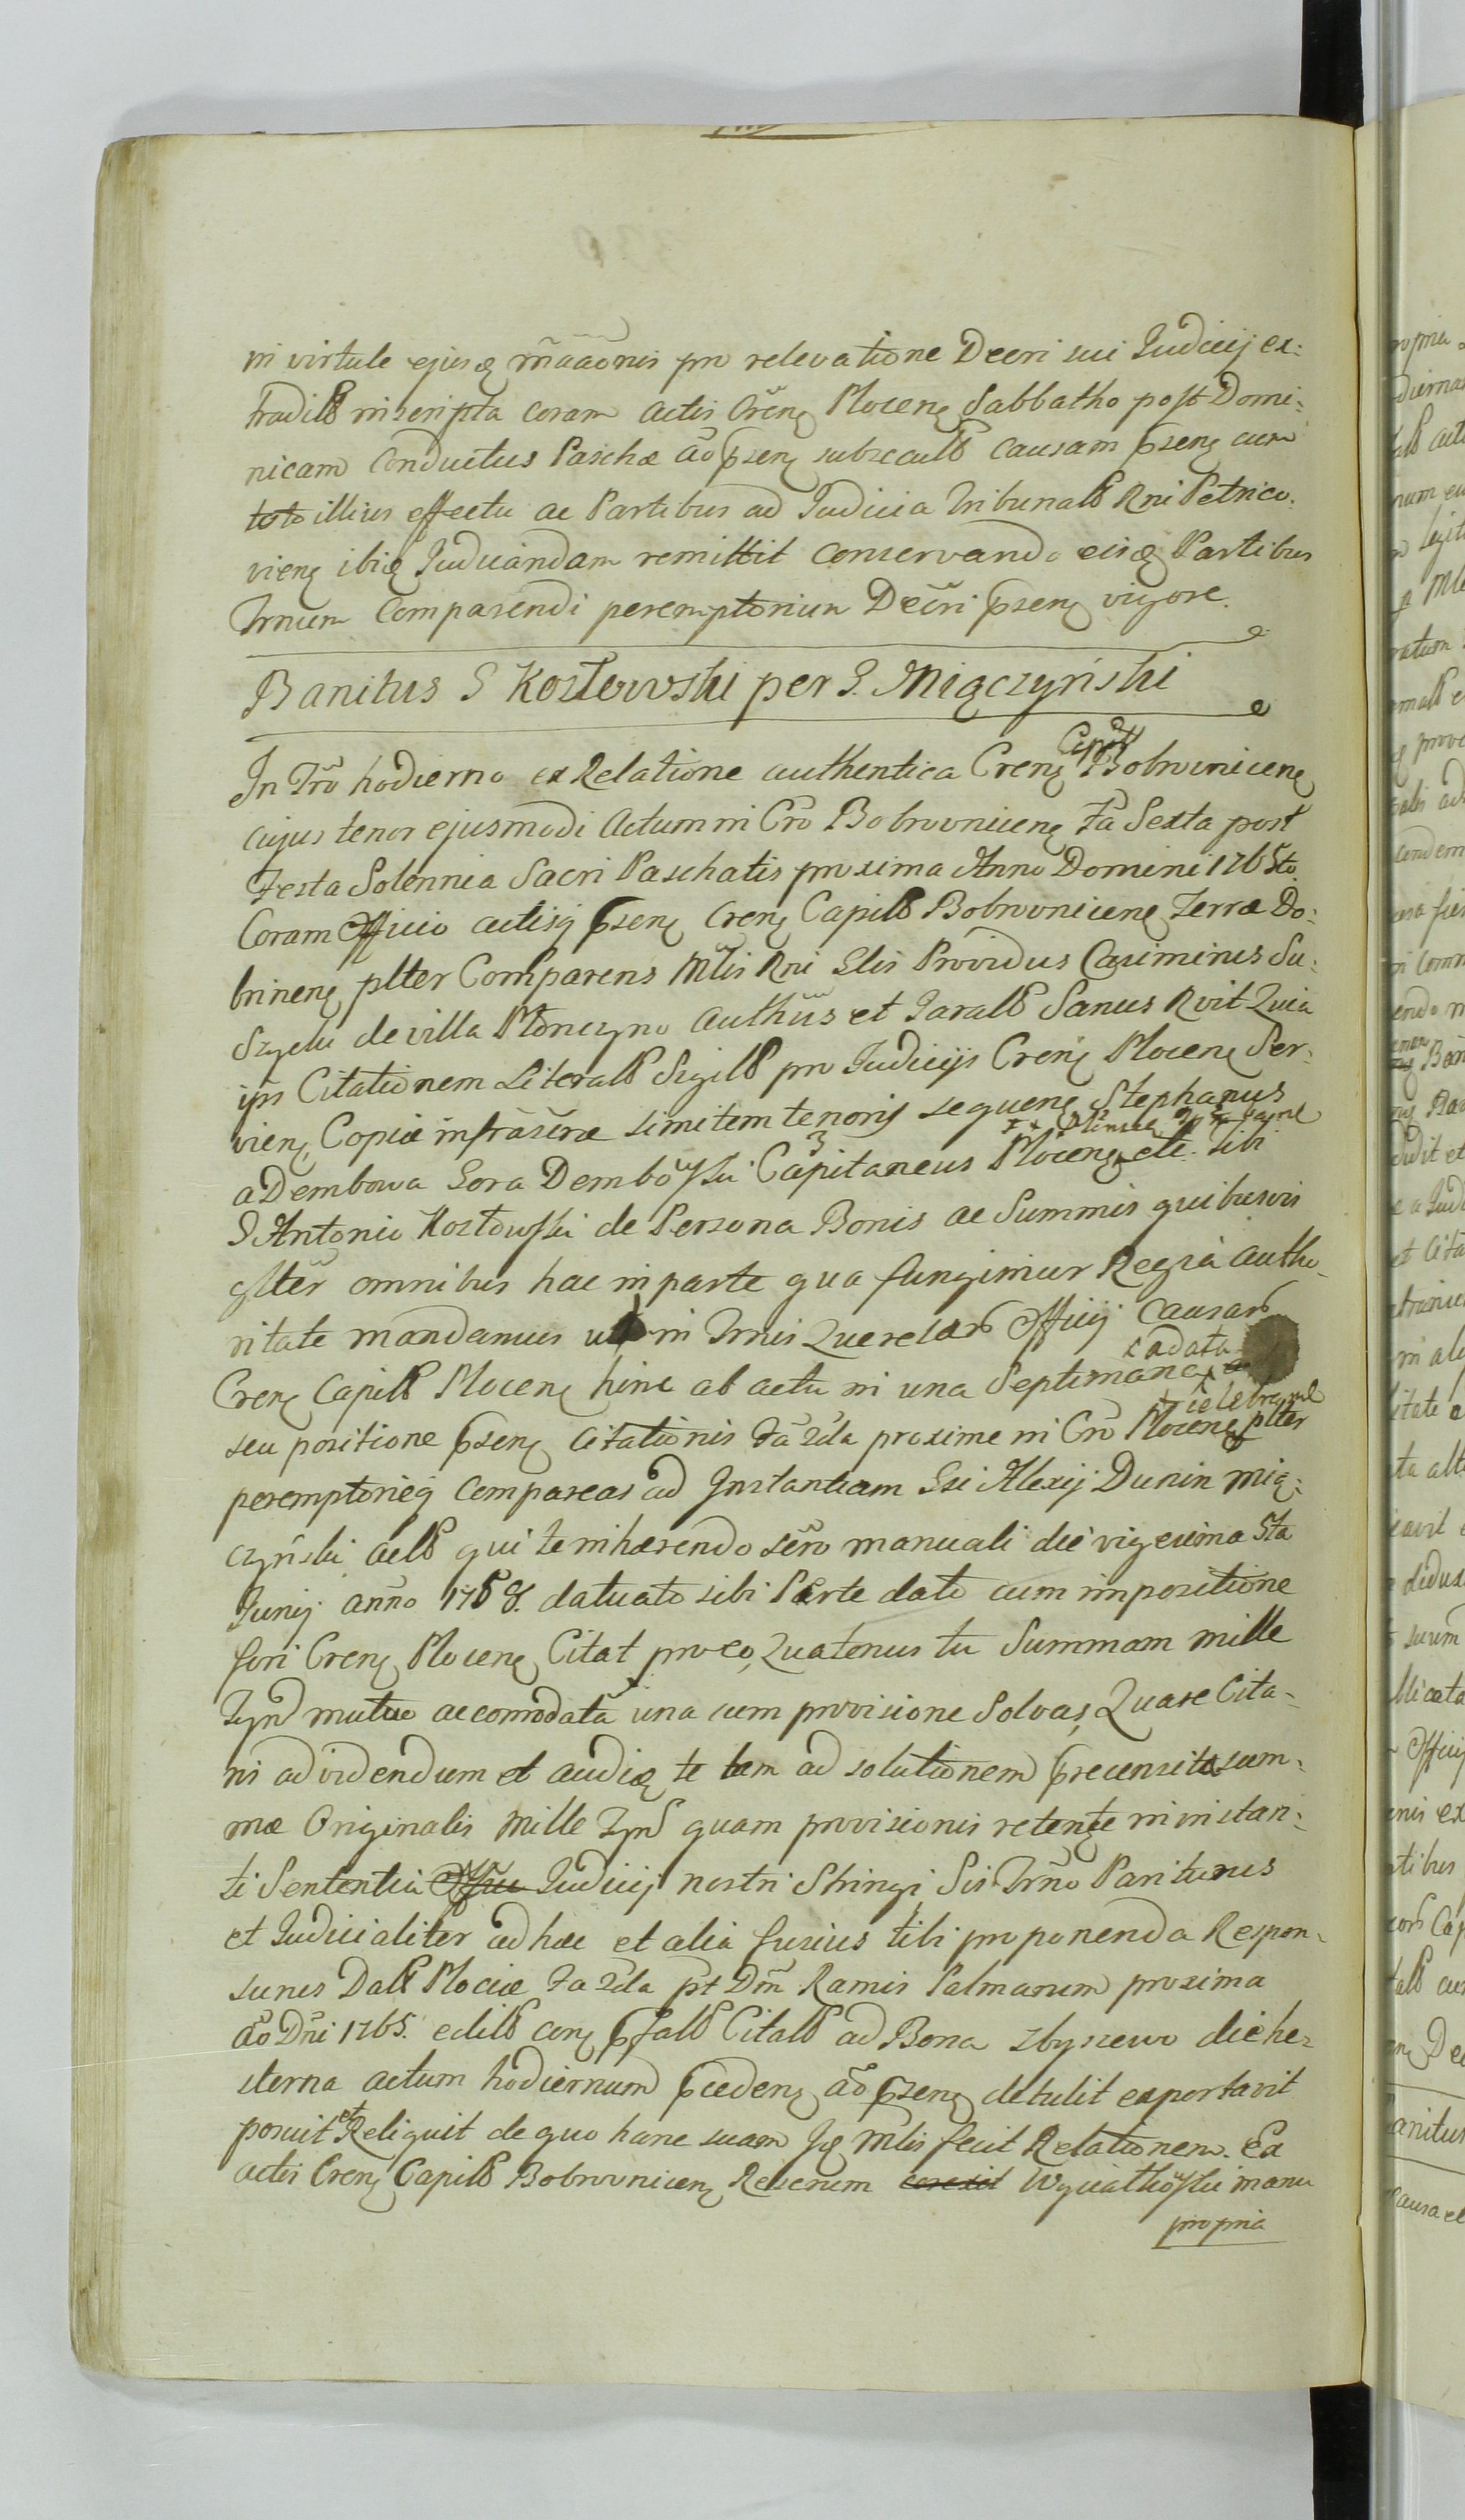 in virtute ejusq mãaaõnis pro relevatione Decri sui Judicij ex:
tradill inscripta coram actis Crẽn Plocen Sabbatho post Domi:
nicam Conductus Paschæ aõ psen subsecull causam psen cum
toto illius effectu ac Partibus ad Judicia Tribunall Rni Petrico:
vien ibiq Judicandam remittit conservando eisq Partibus
Trnum Comparendi peremptorium Decri psen vigore.
Banitus G Kozłowski per G. Miączyński
In Trõ hodierno ex Relatione authentica Cren Capit Bobrownicen
cujus tenor ejusmodi Actum in Crõ Bobrovnicen Fã Sexta post
Festa Solennia Sacri Paschatis proxima Anno Domini 1765to.
Coram Officio actisq psen Cren Capill Bobrovnicen Terræ Do:
brinen plter Comparens Mtlis Rni Glis Providus Casimirus Su:
Szycki de villa Płonczyno Authũs et Jurall Sanus Rvit Quia
ips Citationem Literall Sigill pro Judicijs Cren Plocen Ser:
vien, Copiæ infrascræ similem tenoris sequen Stephanus
a Dembowa Gora Dembowski Capitaneus Plocen etc. Tibi
G Antonio Kozłowski de Persona Bonis ac Summis quibusvis
glter omnibus hac in parte qua fungimur Regia autho
ritate mandamus ut in Trnis Querelar Officij Causar
Cren Capill Plocen hinc ab actu in una Septimana a data
seu positione psen Citationis Fã 2da proxime in Crõ Plocen celebrand plter
peremptorieq Compareas ad Instantiam Gsi Alexij Dunin Mią:
czyński aell qui te inhærendo scro manuali die vigesima 5ta
Junij anno 1758. datuato sibi Parte dato cum impositione
fori Cren Plocen Citat pro eo, Quatenus tu Summam mille
Tynf mutuo accomodatã una cum provisione Solvas, Quare Cita-
ris ad videndum et audiq te tam ad solutionem precensitæ sum:
mæ Originalis mille Tynf quam provisionis retentæ in instan:
ti Sententia Offcu Judicij nostri Stringi Sis Trno Pariturus
et Judicialiter ad hæc et alia fusius tibi proponenda Respon:
surus Datt Plociæ Fa 2da pt Dm̃ Ramis Palmarum proxima
aõ Dni 1765. Citall ad Bona Zbyszewo die he:
sterna actum hodiernum pceden aõ psen detulit exportavit
posuit et Reliquit de quo hanc suam Iq Mtlis fecit Relationem. Ex
actis Cren Capill Bobrovnicen Rescrum corexit manu
propria